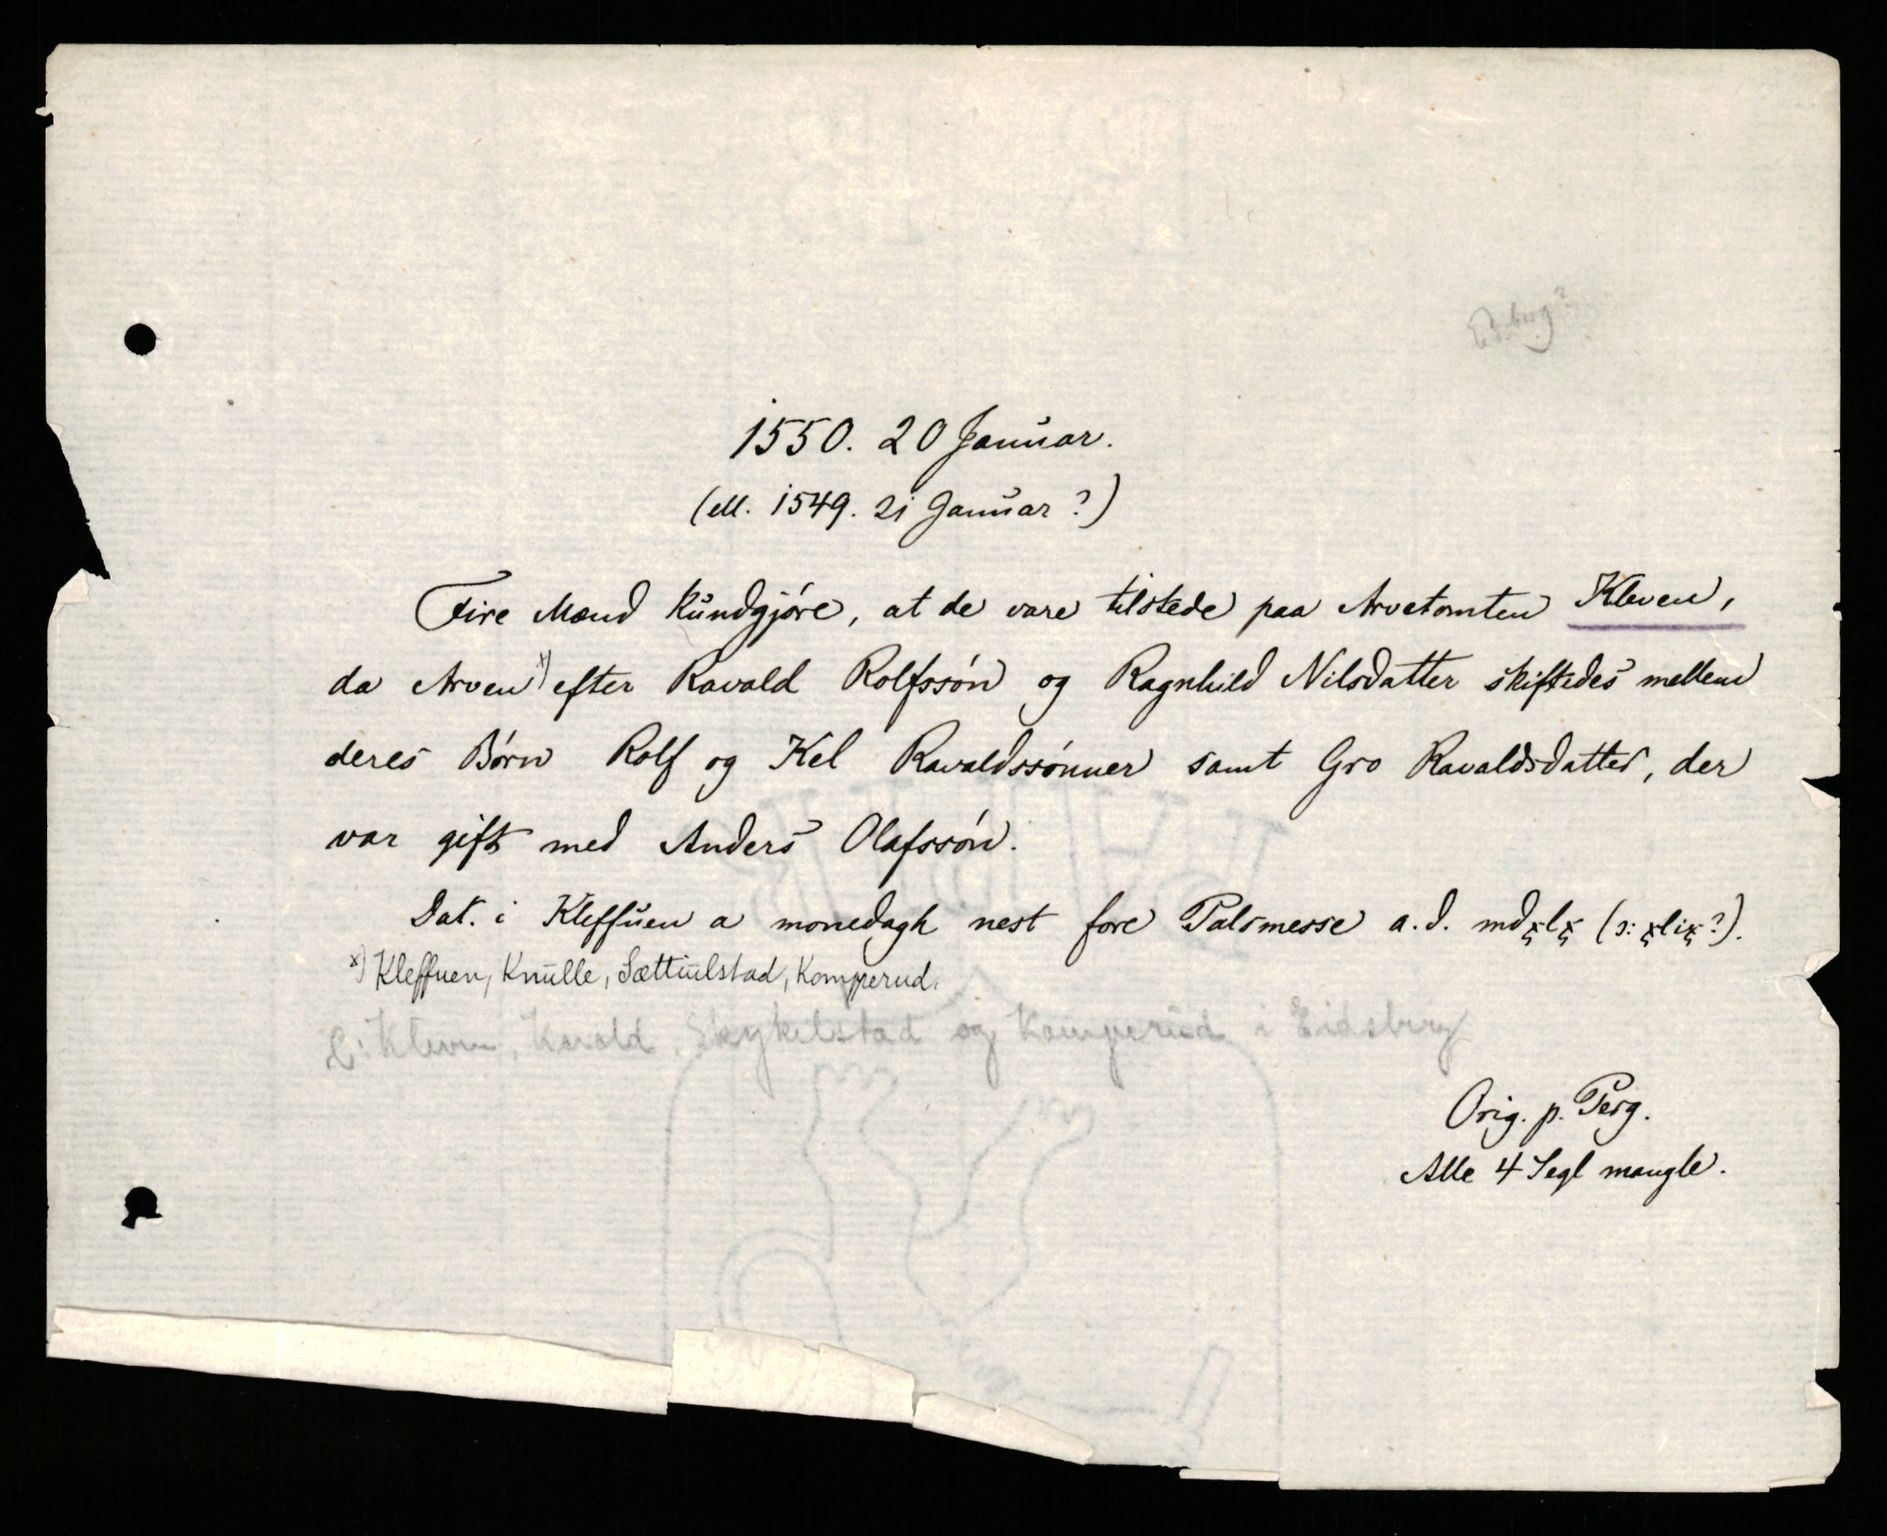 Eidsberg?
1550. 20 Januar.
(ell. 1549. 21 Januar?)
Fire Mænd kundgjøre, at de vare tilstede paa Arvetomten Kleven,
da Arven x) efter Ravald Rolfssøn og Ragnhild Nilsdatter skiftedes mellem
deres Børn Rolf og Kel Ravaldssønner samt Gro Ravaldsdatter, der
var gift med Anders Olafssøn.
Dat. i Kleffuen a monedagh nest fore Palsmesse a. d. mdxlx (ɔ: xlix?).
x) Kleffuen, Knulle, Sættiulstad, Komperud.
ɔ: Kleven, Skykelstad og Kamperud i Eidsberg
Orig. p. Perg.
Alle 4 Segl mangle.